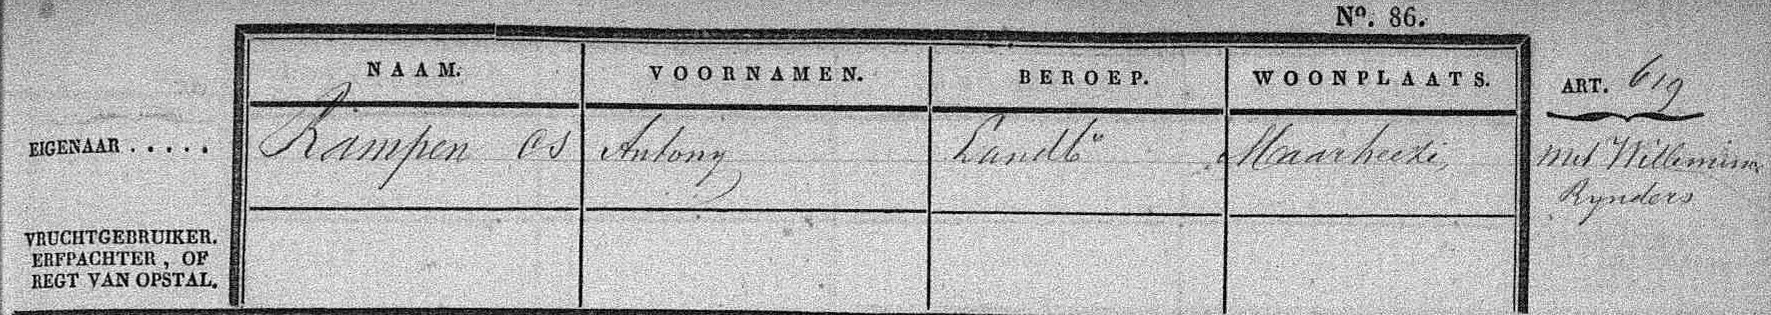 No. 86.
NAAM. VOORNAMEN. BEROEP. WOONPLAATS. ART. 619
EIGENAAR . . . . . Kampen cs Antony Landbr Maarheeze, met Willemina
Rynders
VRUCHTGEBRUIKER.
ERFPACHTER, OF
REGT VAN OPSTAL.